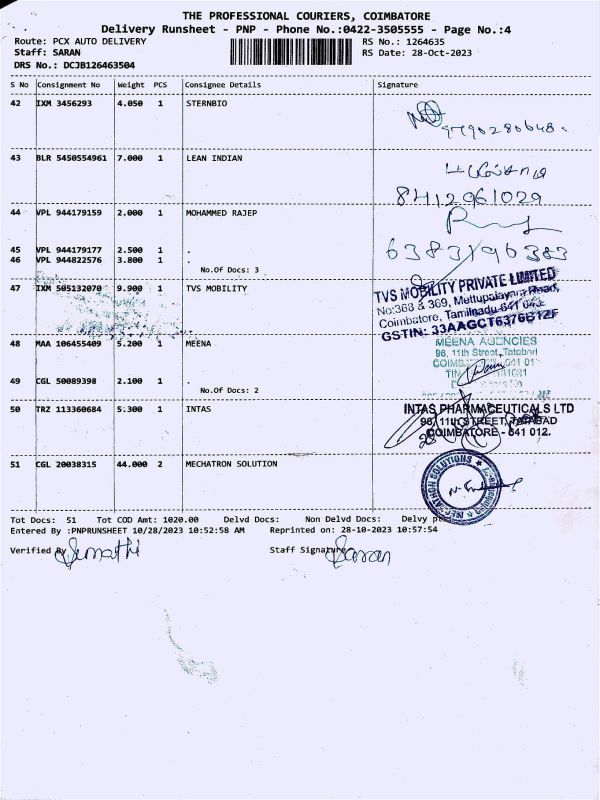 THE PROFESSIONAL COURIERS, COIMBATORE
Delivery Runsheet - PNP - Phone No.:0422-3505555 - Page No.:4
Route: PCX AUTO DELIVERY RS No.: 1264635
Staff: SARAN RS Date: 28-Oct-2023
DRS No.: DCJB126463504
S No Consignment No Weight PCS Consignee Details Signature
42 IXM 3456293 4.050 1 STERNBIO
9790280648.
43 BLR 5450554961 7.000 1 LEAN INDIAN
8412961029
44 VPL 944179159 2.000 1 MOHAMMED RAJEP
45 VPL 944179177 2.500 1 .
46 VPL 944822576 3.800 1 .
No.Of Docs: 3
47 IXM 505132070 9.900 1 TVS MOBILITY
TVS MOBILITY PRIVATE LIMITED
No:368 & 369, Mettupalayam Road,
Coimbatore, Tamilnadu-641 043.
GSTIN: 33AAGCT6376B1ZF
48 MAA 106455409 5.200 1 MEENA
MEENA AGENCIES
96, 11th Street, Tatabad
49 CGL 50089398 2.100 1 .
No.Of Docs: 2
50 TRZ 113360684 5.300 1 INTAS
INTAS PHARMACEUTICALS LTD
96, 11th STREET, TATABAD
COIMBATORE - 641 012.
51 CGL 20038315 44.000 2 MECHATRON SOLUTION
Tot Docs: 51 Tot COD Amt: 1020.00 Delvd Docs: Non Delvd Docs: Delvy
Entered By :PNPRUNSHEET 10/28/2023 10:52:58 AM Reprinted on: 28-10-2023 10:57:54
Verified By Sumathi Staff Signature Saran